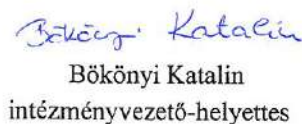 Bökönyi Katalin
Bökönyi Katalin
intézményvezető-helyettes